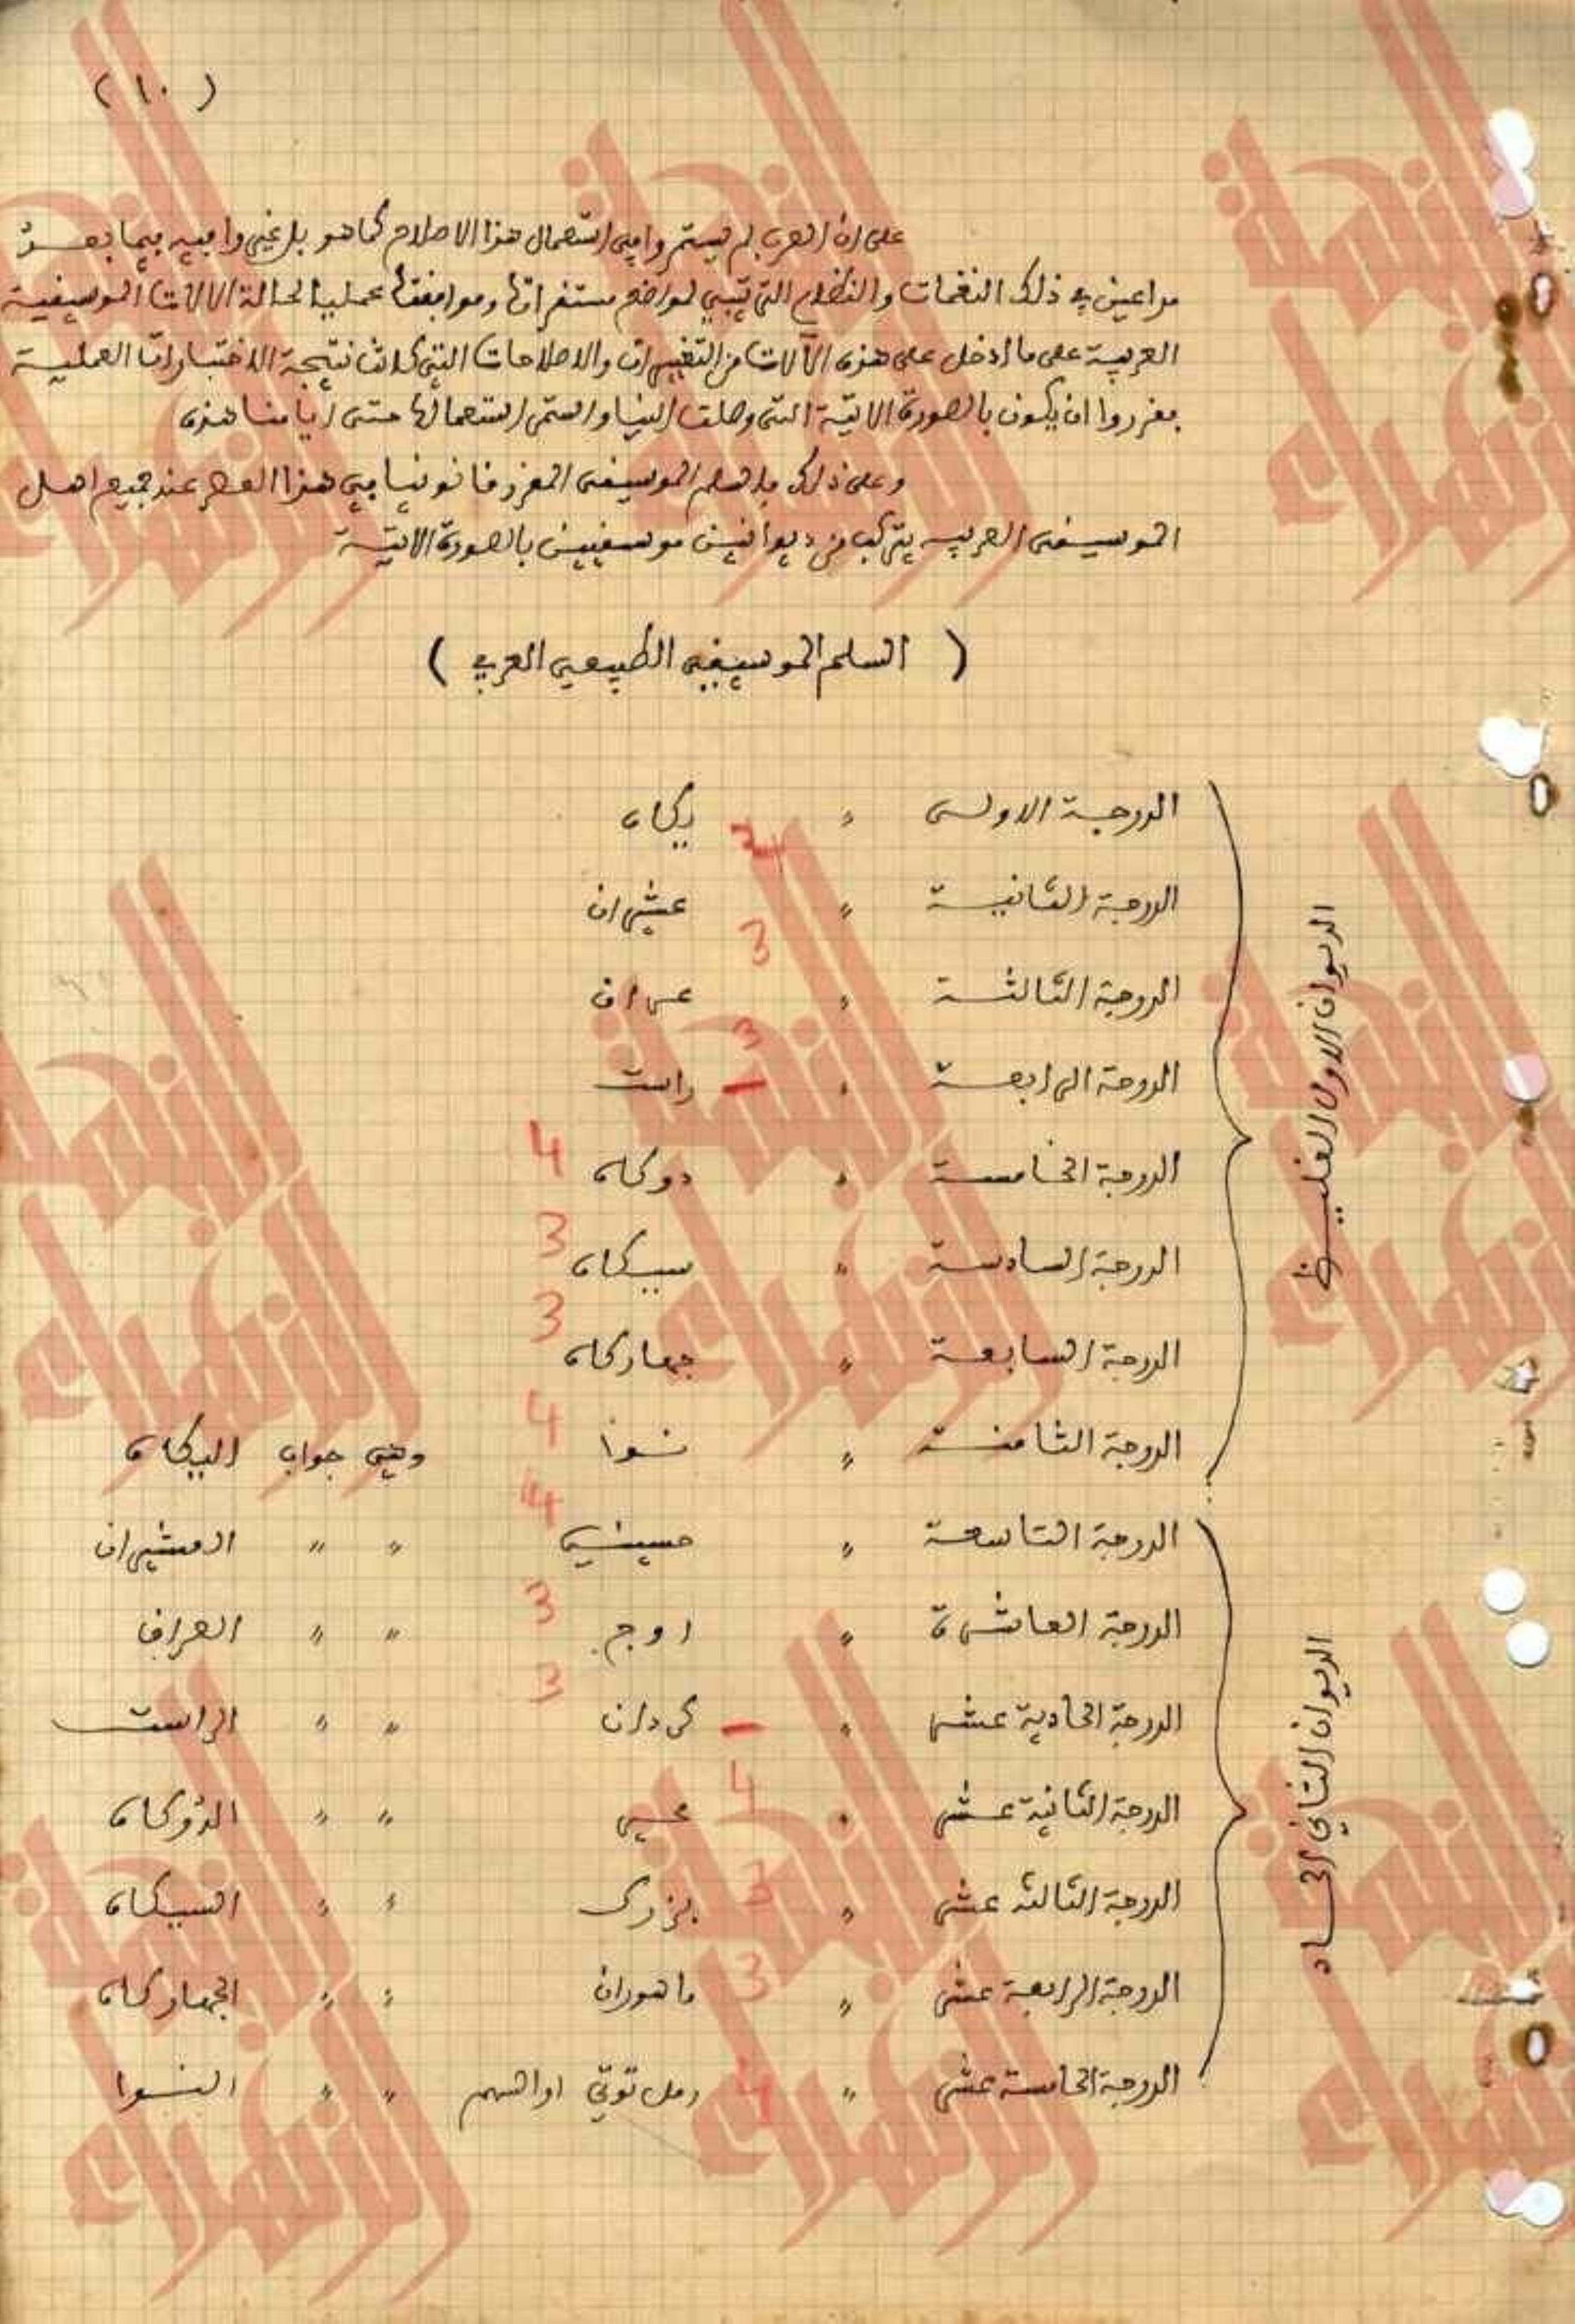 (١٠)
على ان العرب لم يستمروا في استعمال هذا الاصلاح كما هو بل غيروا فيه فيما بعد
مراعين في ذلك النغمات والنظام التي لمواضع مستقراتها وموافقتها عمليا لحالة الالات الموسيقية
العربية على ما ادخل على هذه الآلات من التغييرات والاصلاحات التي كانت نتيجة الاختبارات العملية
فقرروا ان يكون بالصورة الاتية التي وصلت الينا واستمر استعمالها حتى ايامنا هذه
وعلى ذلك فالسلم الموسيقى المقرر قانونيا في هذا العصر عند جميع اهل
الموسيقى العربيه يتركب من ديوانين موسقيين بالصورة الاتية
( السلم الموسيقي الطبيعي العربي )
الديوان الاول الغليظ
الدرجة الاولى " يكاه
4
الدرجة الثانية " عشيران
3
الدرجة الثالثة " عراق
3
الدرجة الرابعة " — راست
الدرجة الخامسة " دوكاه 4
الدرجة السادسة " سيكاه 3
الدرجة السابعة " جهاركاه 3
الدرجة الثامنة " نوا 4 وهي جواب اليكاه
الديوان الثاني الحاد
الدرجة التاسعة " حسيني 4 " " العشيران
الدرجة العاشرة " اوج 3 " " العراق
الدرجة الحادية عشر " — كردان 3 " " الراست
الدرجة الثانية عشر " 4 محير " " الدوكاه
الدرجة الثالثه عشر " 3 بزرك " " السيكاه
الدرجة الرابعة عشر " 3 ماهوران " " الجهاركاه
الدرجة الخامسة عشر " 4 رمل توتي او السهم " " النوا
النهضة
الزهراء